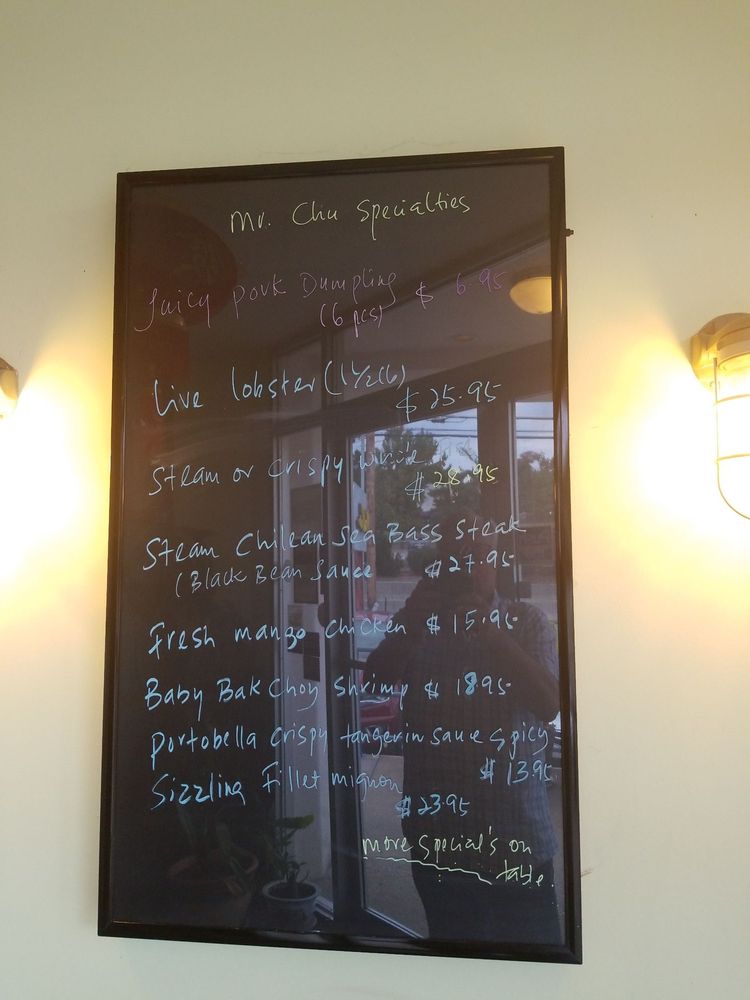 Mr. Chu Specialties
Juicy pork Dumpling $ 6.95
(6 pcs)
Live lobster (1 1/2 lb)
$ 25.95
Steam or crispy whole
$ 28.95
Steam Chilean Sea Bass Steak
(Black Bean Sauce $ 27.95
Fresh mango chicken $ 15.95
Baby Bak Choy shrimp $ 18.95
Portobella crispy tangerin sauce spicy
$ 13.95
Sizzling Fillet mignon
$ 23.95
more special's on
table.